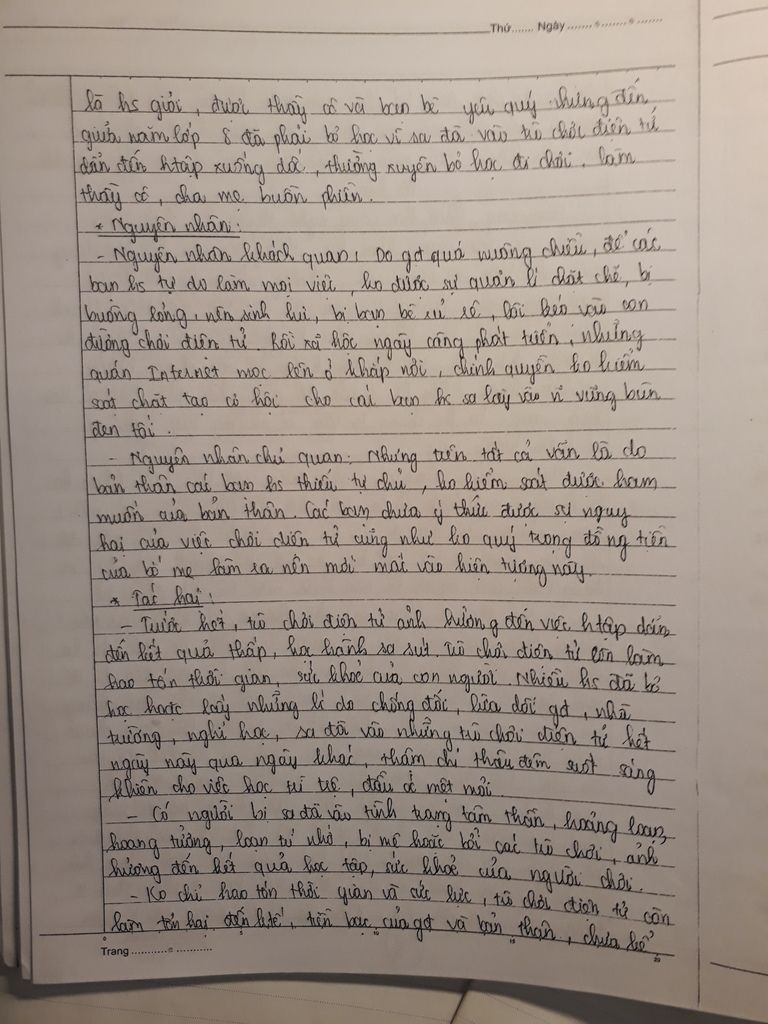 Thứ....... Ngày ........................
là hs giỏi, được thầy cô và bạn bè yêu quý nhưng đến
giữa năm lớp 8 đã phải bỏ học vì sa đà vào trò chơi điện tử
dẫn đến htập xuống dốc, thường xuyên bỏ học đi chơi, làm
thầy cô, cha mẹ buồn phiền.
* Nguyên nhân:
- Nguyên nhân khách quan: Do gđ quá nuông chiều, để các
bạn hs tự do làm mọi việc, ko được sự quản lí chặt chẽ, bị
buông lỏng nên sinh hư, bị bạn bè rủ rê, lôi kéo vào con
đường chơi điện tử. Rồi xã hội ngày càng phát triển, những
quán Internet mọc lên ở khắp nơi, chính quyền ko kiểm
soát chặt tạo cơ hội cho các bạn hs sa lầy vào vũng bùn
đen tối.
- Nguyên nhân chủ quan: Nhưng trên tất cả vẫn là do
bản thân các bạn hs thiếu tự chủ, ko kiểm soát được ham
muốn của bản thân. Các bạn chưa ý thức được sự nguy
hại của việc chơi điện tử cũng như ko quý trọng đồng tiền
của bố mẹ làm ra nên mới mắc vào hiện tượng này.
* Tác hại:
- Trước hết, trò chơi điện tử ảnh hưởng đến việc htập dẫn
đến kết quả thấp, học hành sa sút. Trò chơi điện tử còn làm
hao tốn thời gian, sức khoẻ của con người. Nhiều hs đã bỏ
học hoặc lấy những lí do chống đối, lừa dối gđ, nhà
trường, nghỉ học, sa đà vào những trò chơi điện tử hết
ngày này qua ngày khác, thậm chí thâu đêm suốt sáng
khiến cho việc học trì trệ, đầu óc mệt mỏi.
- Có người bị sa đà vào tình trạng tâm thần, hoảng loạn,
hoang tưởng, loạn trí nhớ, bị mê hoặc bởi các trò chơi, ảnh
hưởng đến kết quả học tập, sức khoẻ của người chơi.
- Ko chỉ hao tốn thời gian và sức lực, trò chơi điện tử còn
làm tổn hại đến ktế, tiền bạc của gđ và bản thân, chưa kể
Trang .....................